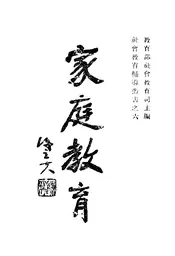 教育部社會教育司主編
社會教育輔導叢書之六
家庭教育